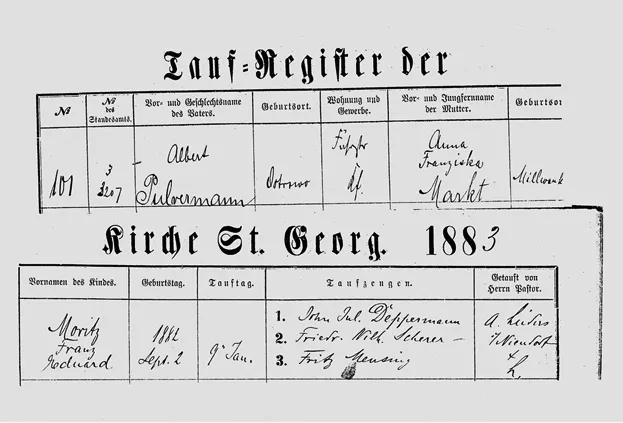 Tauf=Register der
№
№ des Standesamts.
Vor- und Geschlechtsname des Vaters.
Geburtsort.
Wohnung und Gewerbe.
Vor- und Jungfernname der Mutter.
Geburtsort
101
3
3207
Albert
Pulvermann
Anna
Franziska
Markt
Kirche St. Georg. 1883
Vornamen des Kindes.
Geburtstag.
Tauftag.
Taufzeugen.
Getauft von Herrn Pastor.
Moritz
Franz
Eduard
1882
Sept. 2
9 Jan.
1. John Jul. Deppermann
2. Friedr. Wilh. Scherer
3. Fritz Mensing
A. Lüders